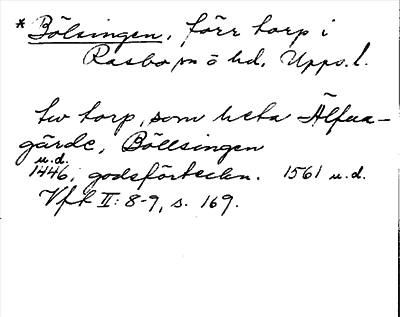 * Bölsingen, förr torp i
Rasbo sn ö hd, Upps. l.
tw torp, som heta Älfua-
gärde, Böllsingen
u.d.
1446, godsförteckn. 1561 u.d.
Vfk II: 8-9, s. 169.